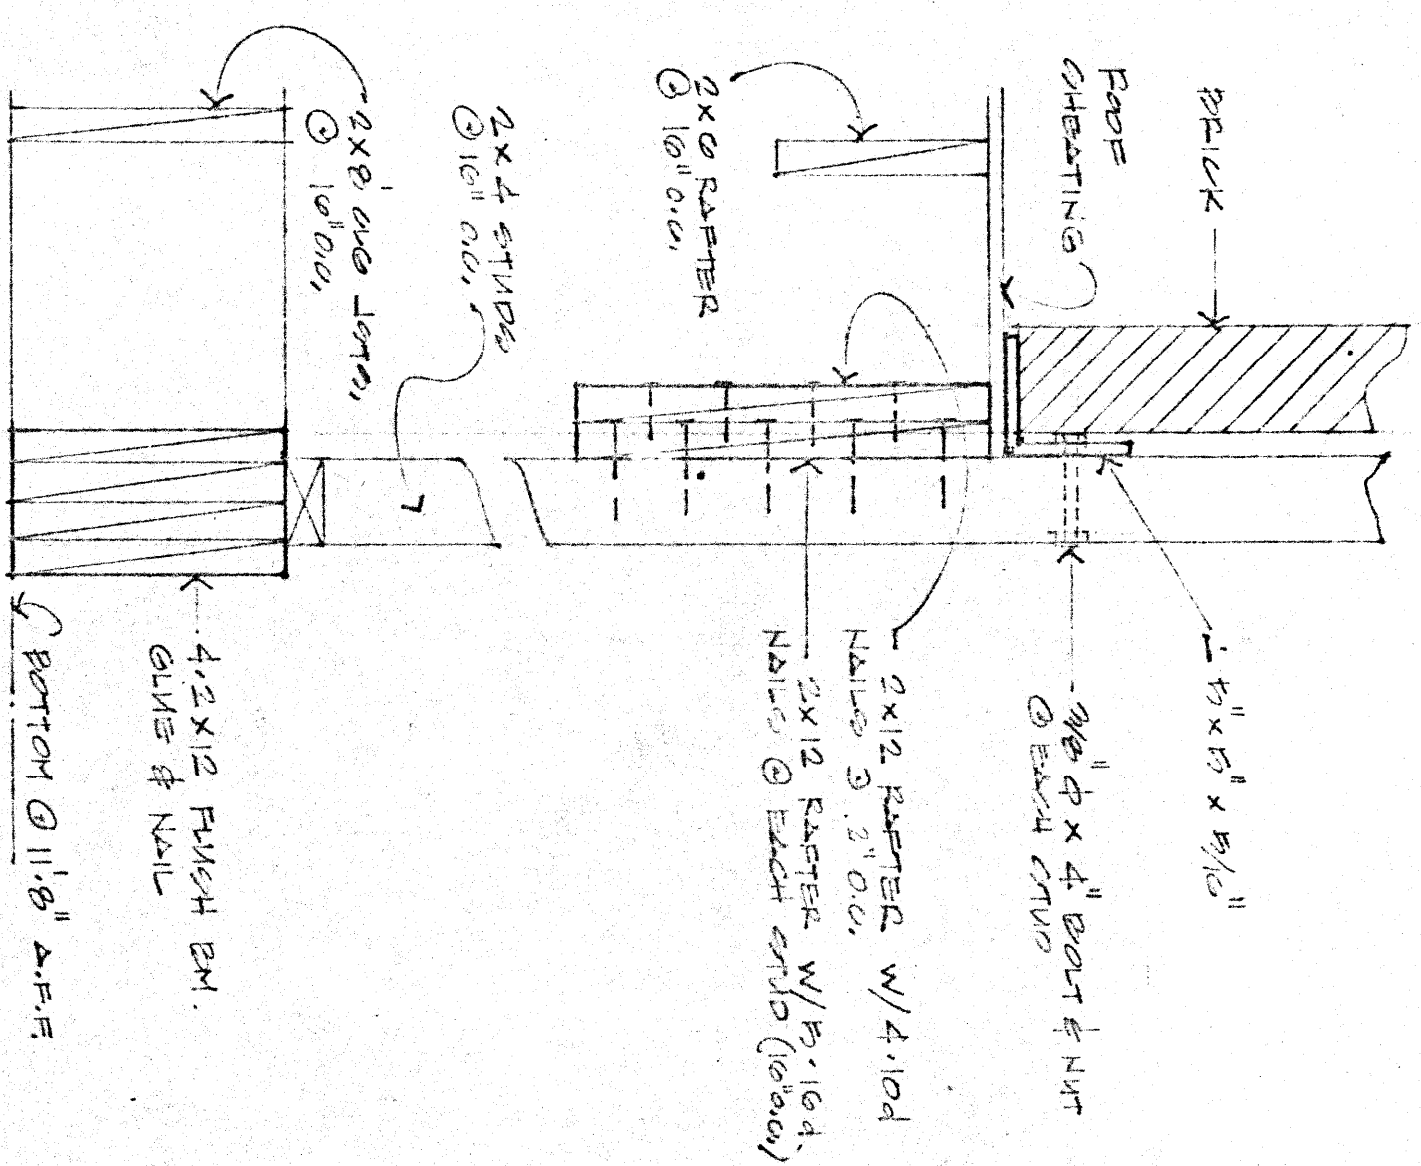 BRICK
ROOF
SHEATING
2X6 RAFTER
@ 16" O.C.
2X4 STUDS
@ 16" O.C.
2X8 CLG JSTS.
@ 16" O.C.
L 5" X 5" X 5/16"
Φ X 4" BOLT & NUT
@ EACH STUD
2X12 RAFTER W/4-10d
NAILS @ 12" O.C.
2X12 RAFTER W/5-16d
NAILS @ EACH STUD (16" O.C.)
4-2X12 FLUSH BM.
GLUE & NAIL
BOTTOM @ 11'-8" A.F.F.